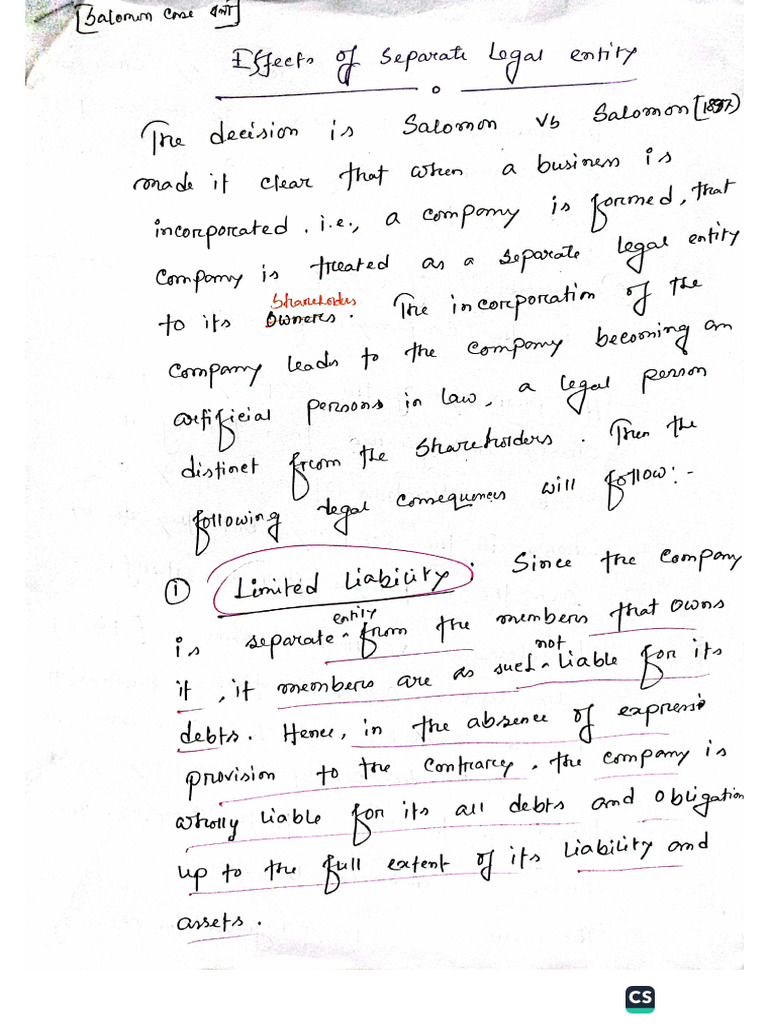 [Salomon Case
Effects of Separate Legal entity
The decision is Salomon Vs Salomon [1897)
made it clear that when a business is
incorporated. i.e., a company is formed, that
Company is treated as a separate legal entity
Shareholdes
to its Owners. The incorporation of the
Company leads to the company becoming an
artificial persons in law, a legal person
distinct from the shareholders. Then the
following legal consequences will follow:-
① Limited Liability: Since the company
is separate ^entity from the members that owns
it, it members are as such ^not liable for its
debts. Hence, in the absence of express
provision to the contrary, the company is
wholly liable for its all debts and obligation
up to the full extent of its liability and
assets.
CS